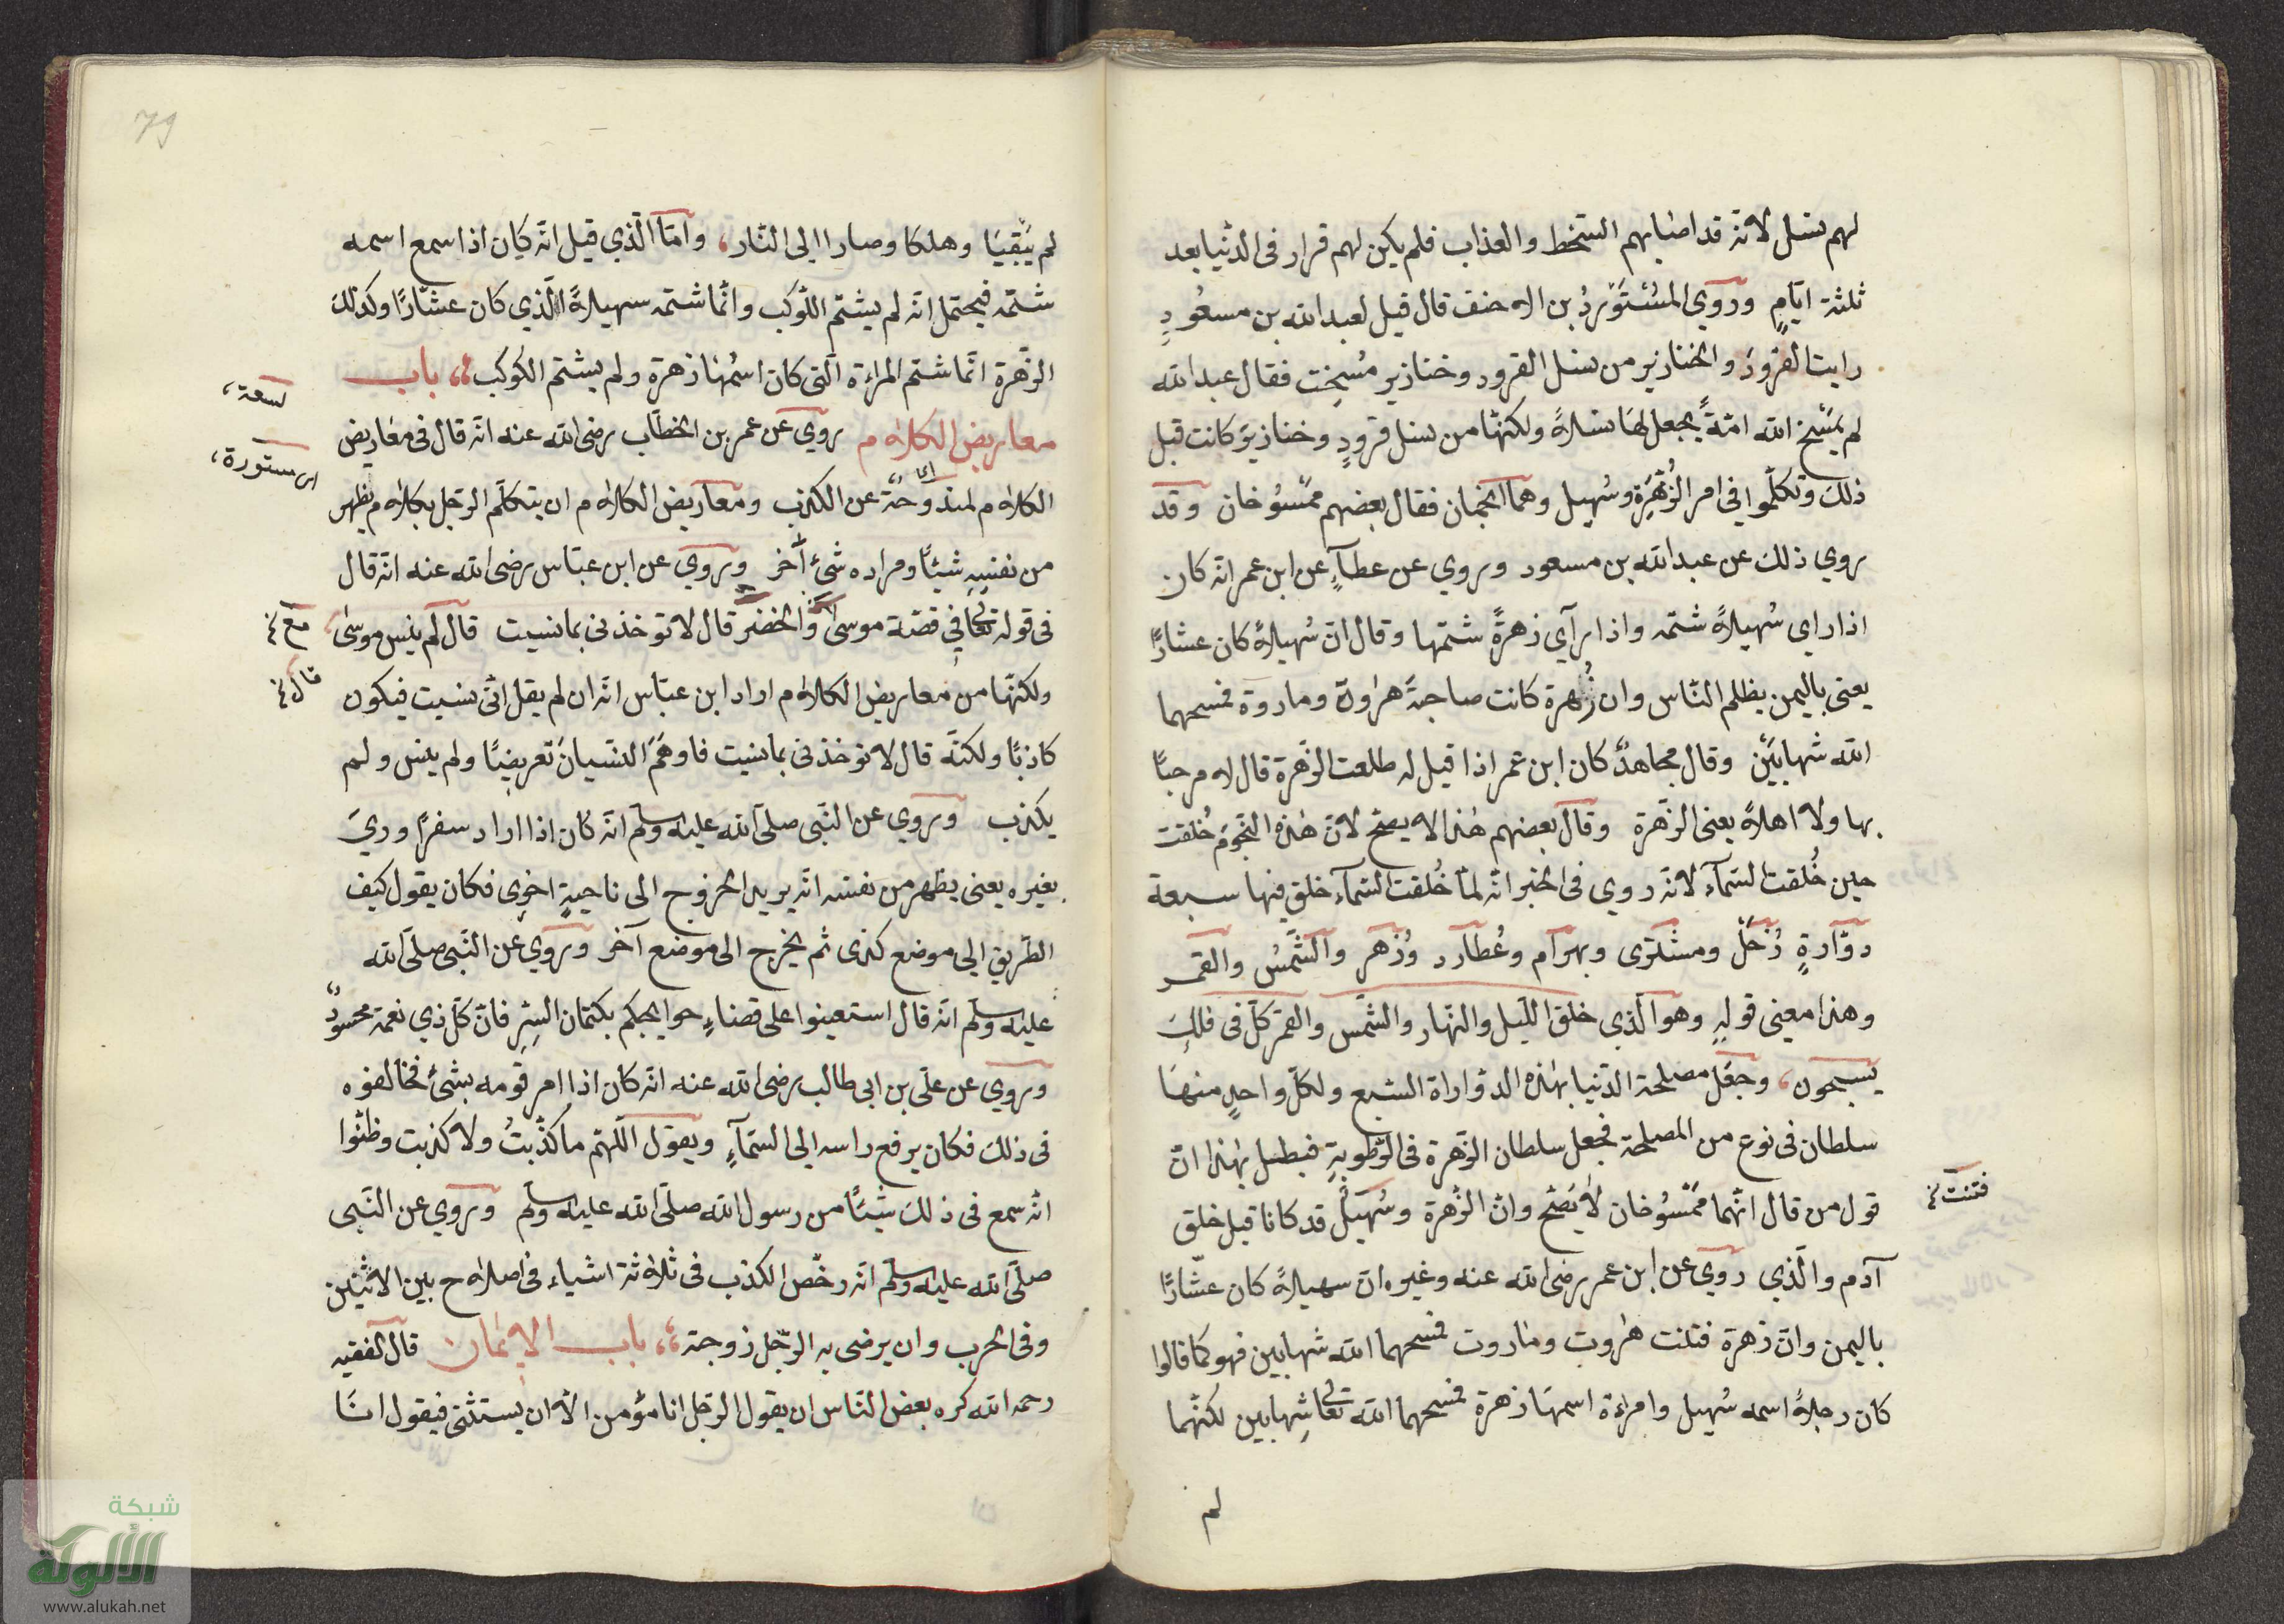 لهم نسل لانه قد اصابهم السخط والعذاب فلم يكن لهم قرار فى الدنيا بعد
ثلثة ايام وروي المستورد بن الاحنف قال قيل لعبد الله بن مسعود
رايت القرود والخنازير من نسل القرود وخنازير مسخت فقال عبد الله
لم يمسخ الله امة يجعل لها نسلا ولكنها من نسل قرود وخنازير كانت قبل
ذلك وتكلموا في امر الزهرة وسهيل وهما النجمان فقال بعضهم ممسوخان وقد
روي ذلك عن عبد الله بن مسعود وروي عن عطاء عن ابن عمر انه كان
اذا راى سهيلا شتمه واذا رآى زهرة شتمها وقال ان سهيلا كان عشارا
يعنى باليمن يظلم الناس وان زهرة كانت صاحبة هروة وماروة فمسخهما
الله شهابين وقال مجاهد كان ابن عمر اذا قيل له طلعت الزهرة قال لا مرحبا
بها ولا اهلا يعنى الزهرة وقال بعضهم هذا لا يصح لان هذه النجوم خلقت
حين خلقت السماء لانه روي فى الخبر انه لما خلقت السماء خلق فيها سبعة
دوارة زحل ومشترى وبهرام وعطارد وزهر والشمس والقمر
وهذا معنى قوله وهو الذي خلق الليل والنهار والشمس والقمر كل فى فلك
يسبحون، وجعل مصلحة الدنيا بهذه الدواراة السبع ولكل واحد منها
سلطان فى نوع من المصلحة فجعل سلطان الزهرة فى الرطوبة فبطل بهذا ان
قول من قال انهما ممسوخان لا يصح وان الزهرة وسهيل قد كانا قبل خلق
فتنت
آدم والذي روي عن ابن عمر رضى الله عنه وغيره ان سهيلا كان عشارا
باليمن وان زهرة فتنت هروت وماروت فمسخهما الله شهابين فهو كما قالوا
كان رجلا اسمه سهيل وامراءة اسمها زهرة فمسخهما الله تعالى شهابين لكنهما
لم
79
لم يبقيا وهلكا وصارا الى النار، واما الذي قيل انه كان اذا سمع اسمه
شتمه فيحتمل انه لم يشتم الكوكب وانما شتمه سهيلا الذي كان عشارا وكذلك
الزهرة انما شتم المراءة التى كان اسمها زهرة ولم يشتم الكوكب، باب
لسعة،
معاريض الكلام روي عن عمر بن الخطاب رضى الله عنه انه قال فى معاريض
اى ستورة،
الكلام لمندوحة عن الكذب ومعاريض الكلام ان يتكلم الرجل بكلام يظهر
من نفسه شيئا ومراده شئ آخر وروي عن ابن عباس رضى الله عنه انه قال
فى قوله تعالى في قصة موسى والخضر قال لا تؤخذنى بما نسيت قال لم ينس موسى
مع
ولكنها من معاريض الكلام اراد ابن عباس انه ان لم يقل انى نسيت فيكون
قال
كاذبا ولكنه قال لا تؤخذنى بما نسيت فاوهم النسيان تعريضا ولم ينس ولم
يكذب وروي عن النبى صلى الله عليه وسلم انه كان اذا اراد سفرا وري
بغيره يعنى يظهر من نفسه انه يريد الخروج الى ناحية اخرى فكان يقول كيف
الطريق الى موضع كذى ثم يخرج الى موضع آخر وروي عن النبى صلى الله
عليه وسلم انه قال استعينوا على قضاء حوايجكم بكتمان السر فان كل ذي نعمة محسود
وروي عن على بن ابى طالب رضى الله عنه انه كان اذا امر قومه بشئ فخالفوه
فى ذلك فكان يرفع راسه الى السماء ويقول اللهم ما كذبت ولا كذبت وظنوا
انه سمع فى ذلك شيئا من رسول الله صلى الله عليه وسلم وروي عن النبى
صلى الله عليه وسلم انه رخص الكذب فى ثلاثة اشياء فى اصلاح بين الاثنين
وفى الحرب وان يرضى به الرجل زوجته، باب الايمان قال الفقيه
رحمه الله كره بعض الناس ان يقول الرجل انا مؤمن الا ان يستثنى فيقول انا
شبكة
الألوكة
www.alukah.net